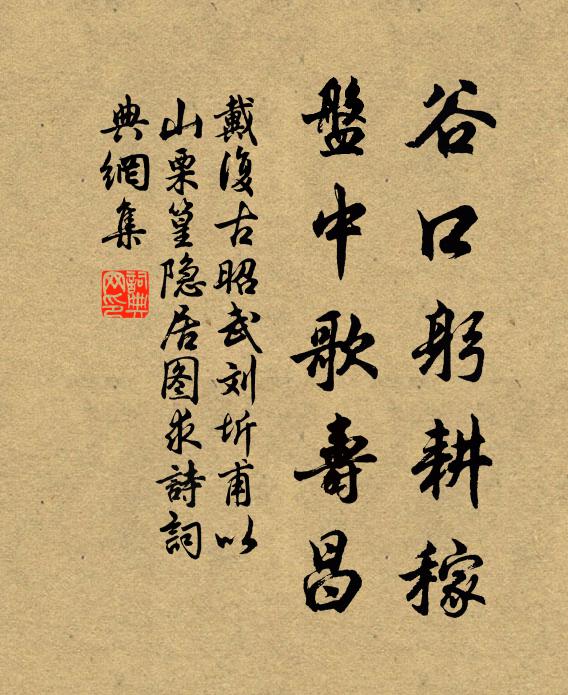 谷口躬耕稼
盤中歌壽昌
戴復古昭武刘圻甫以
山栗篁隐居图求詩詞
典網集
詞典
网印